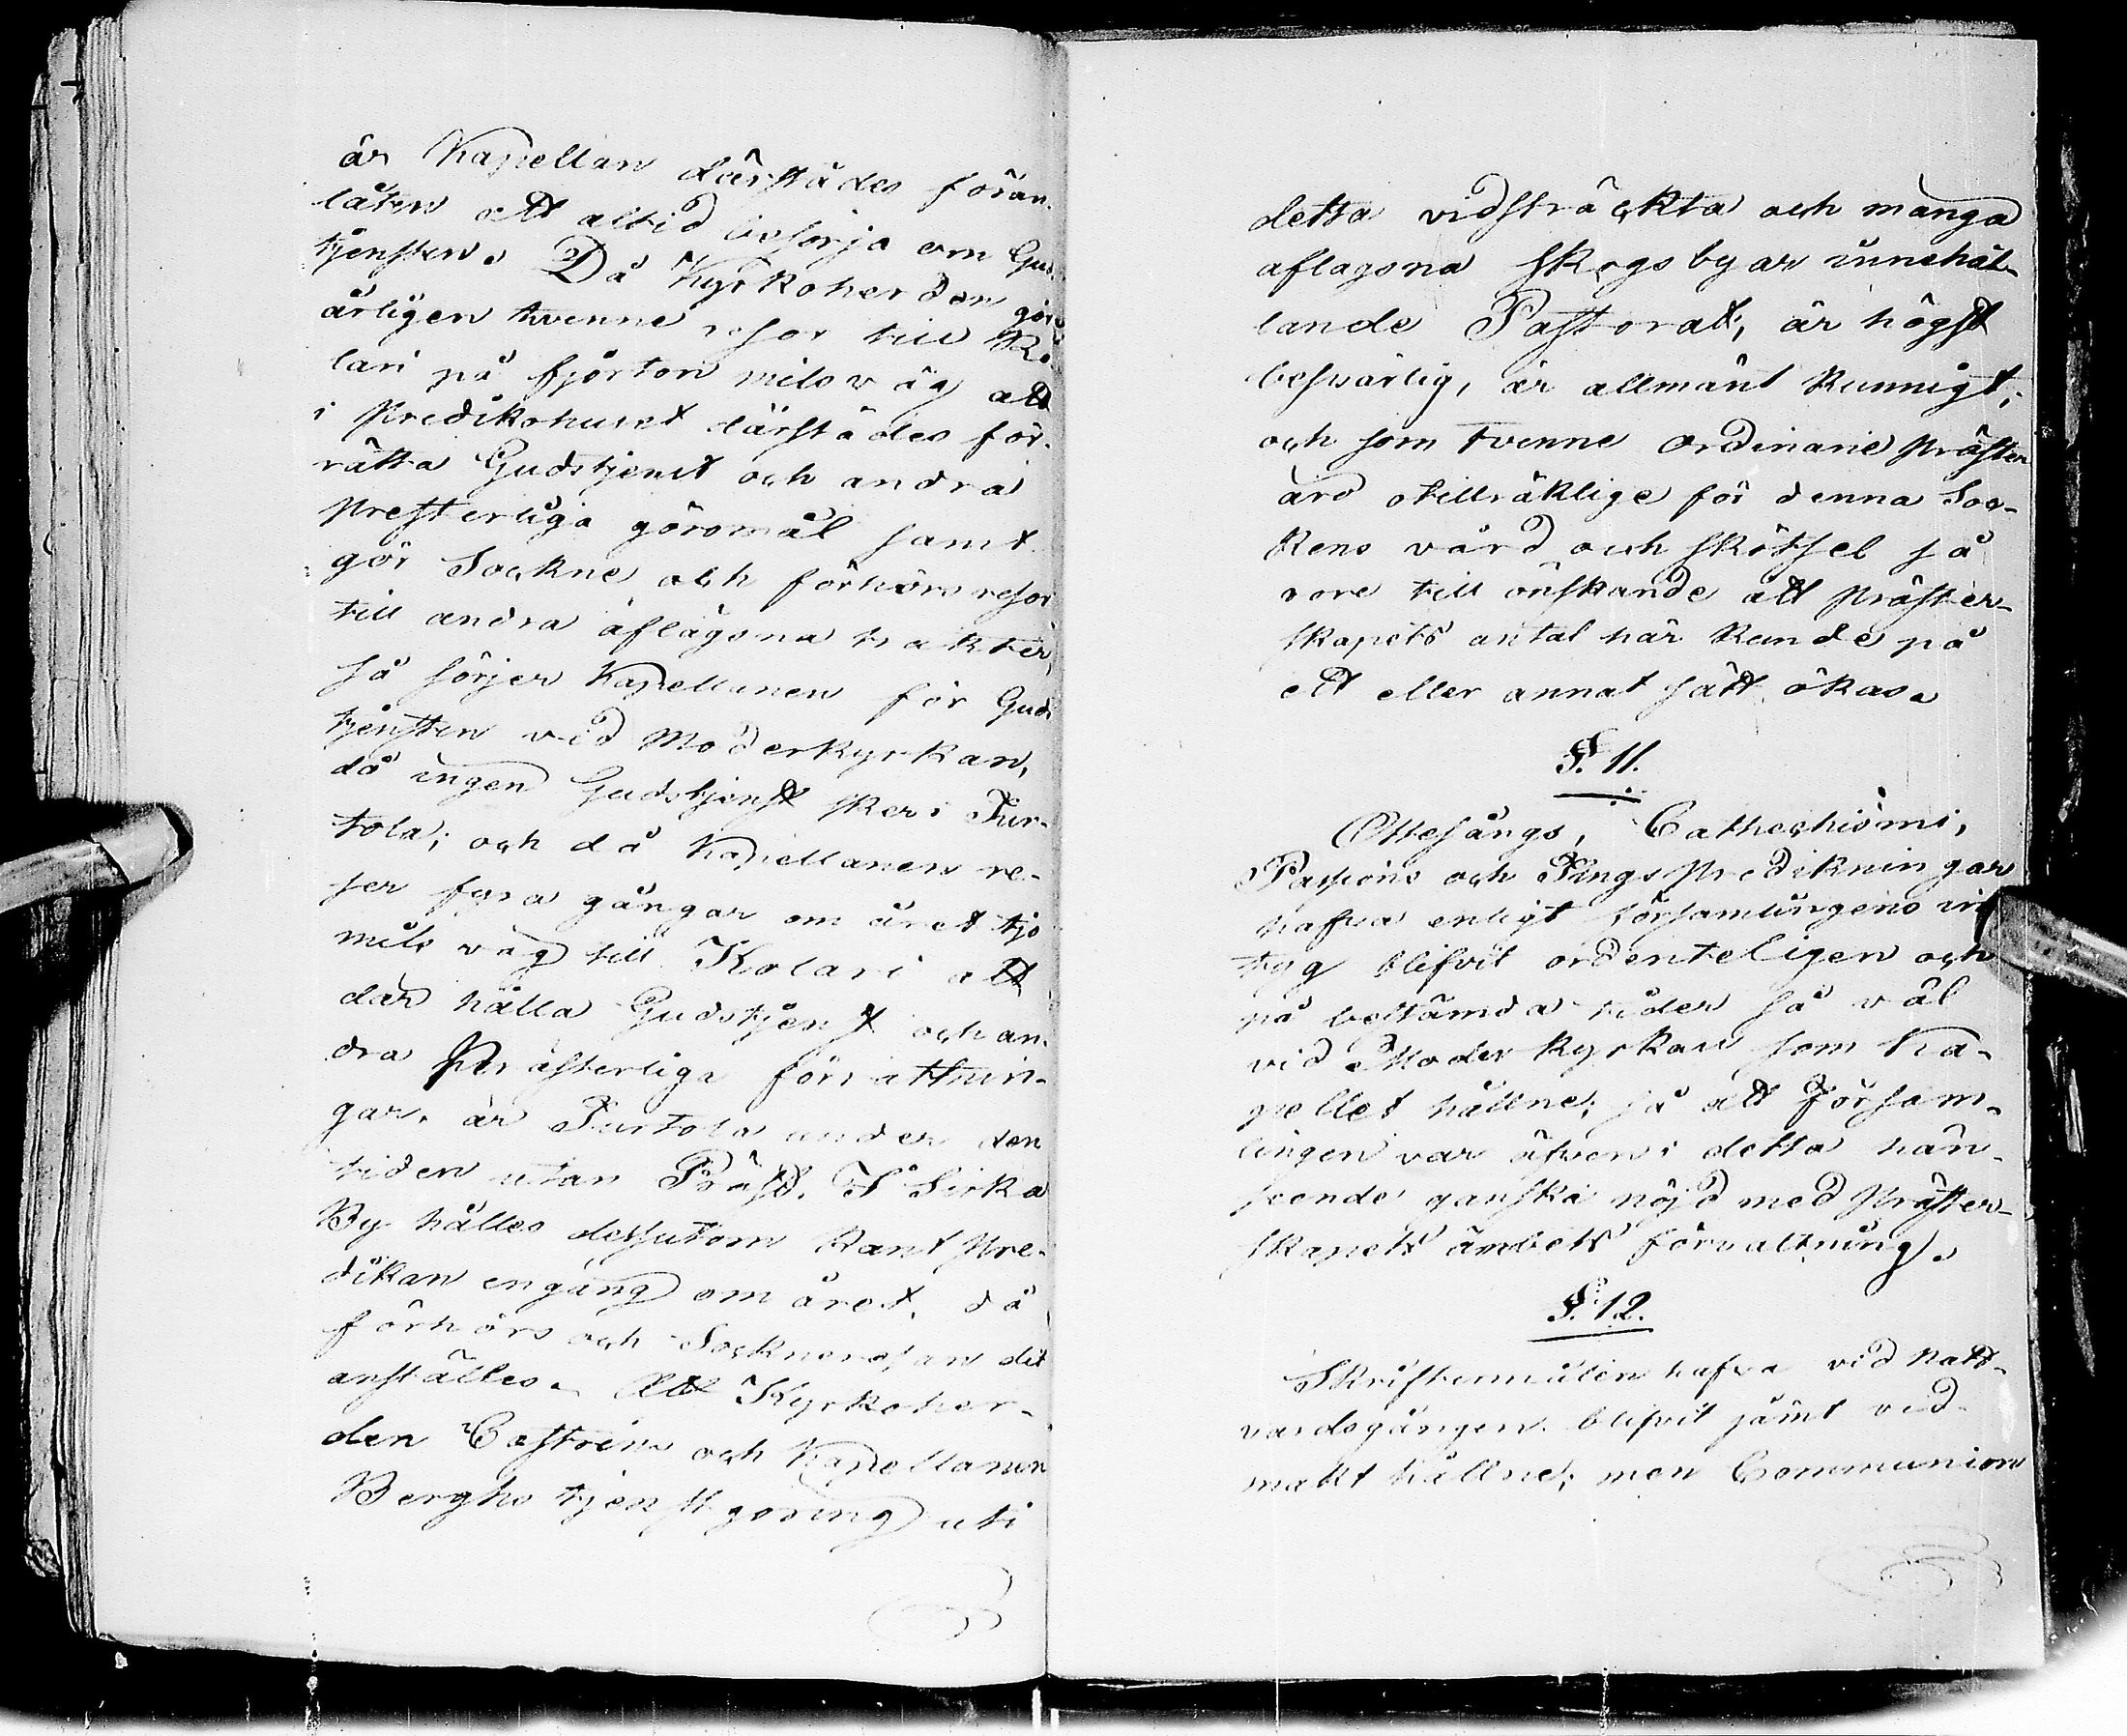 är Kapellan därstädes föran-
låten att altid besörja om Guds
tjensten. Då Kyrkoherden gör
årligen tvenne resor till Ko
lari på fjorton mils väg att
i Predikohuset därstädes för-
rätta Gudstjenst och andra
Presterliga göromål samt
gör Sockne och förhörs resor
till andra aflägsna trakter,
så sörjer Kapellanen för Guds
tjensten vid Moderkyrkan,
då ingen Gudstjenst sker i Tur-
tola; och då Kapellanen re-
ser fyra gångar om året tjo
mils väg till Kolari att
där hålla Gudstjenst och an-
dra Prästerliga förrättnin-
gar, är Turtola under den
tiden utan Präst. I Sirka
By hålles dessutom kant Pre-
dikan engång om året, då
förhörs och Socknoresan dit
anställes. Att Kyrkoher-
den Castrén och Kapellanen
Berghs tjenstgöring uti
detta vidsträckta och många
aflägsna skogs byar innehål-
lande Pastorat, är högst
besvärlig, är allmänt kunnigt,
och som tvenne Ordinarie Präster
äro otilräklige för denna Soc-
kens vård och skötsel så
vore till önskande att Präster-
skapets antal här kunde på
ett eller annat sätt ökas.
§. 11.
Ottesångs, Cathechismi,
Passions och Tings Predikningar
hafva enligt Församlingens in
tyg blifvit ordenteligen och
på bestämda tider så väl
vid Moder kyrkan som Ka-
pellet hållne; så att Försam-
lingen var äfven i detta hän-
seende ganska nöjd med Präster-
skapets ämbets förvaltning.
§. 12.
Skriftermålen hafva vid Natt-
vardsgången blifvit jämt vid
makt hållne; men Communion